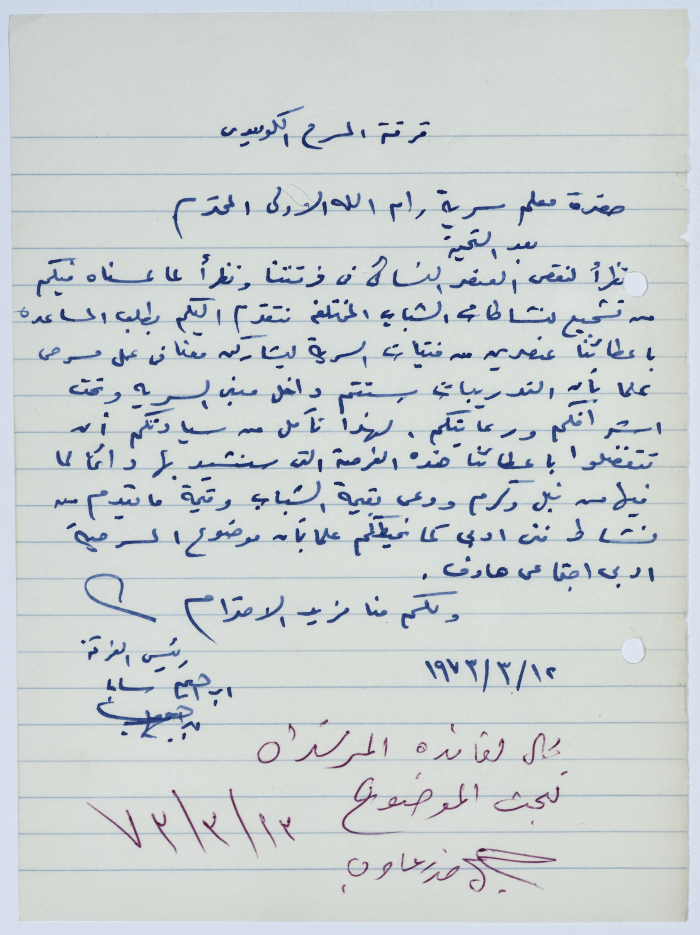 فرقة المسرح الكوميدي
حضرة معلم سرية رام الله الاولى المحترم
بعد التحية
نظراً لنقص العنصر النسائي في فرقتنا ونظراً لما لمسناه فيكم
من تشجيع لنشاطات الشباب المختلفة نتقدم اليكم بطلب المساعدة
باعطائنا عنصرين من فتيات السرية ليشاركن معنا في عمل مسرحي
علما بأن التدريبات ستتم داخل مبنى السرية وتحت
اشرافكم ورعايتكم. لهذا نأمل من سيادتكم أن
تتفضلوا باعطائنا هذه الفرصة التي سنشيد بها دائما لما
فيها من نبل وكرم ووعي بقيمة الشباب وقيمة ما يقدم من
نشاط فني ادبي كما نحيطكم علما بأن موضوع المسرحية
ادبي اجتماعي هادف.
ولكم منا مزيد الاحترام
رئيس الفرقة
ابراهيم سابا
١٩٧٣/٣/١٢
لقائدة المرشدات
لبحث الموضوع
٧٣/٣/١٣